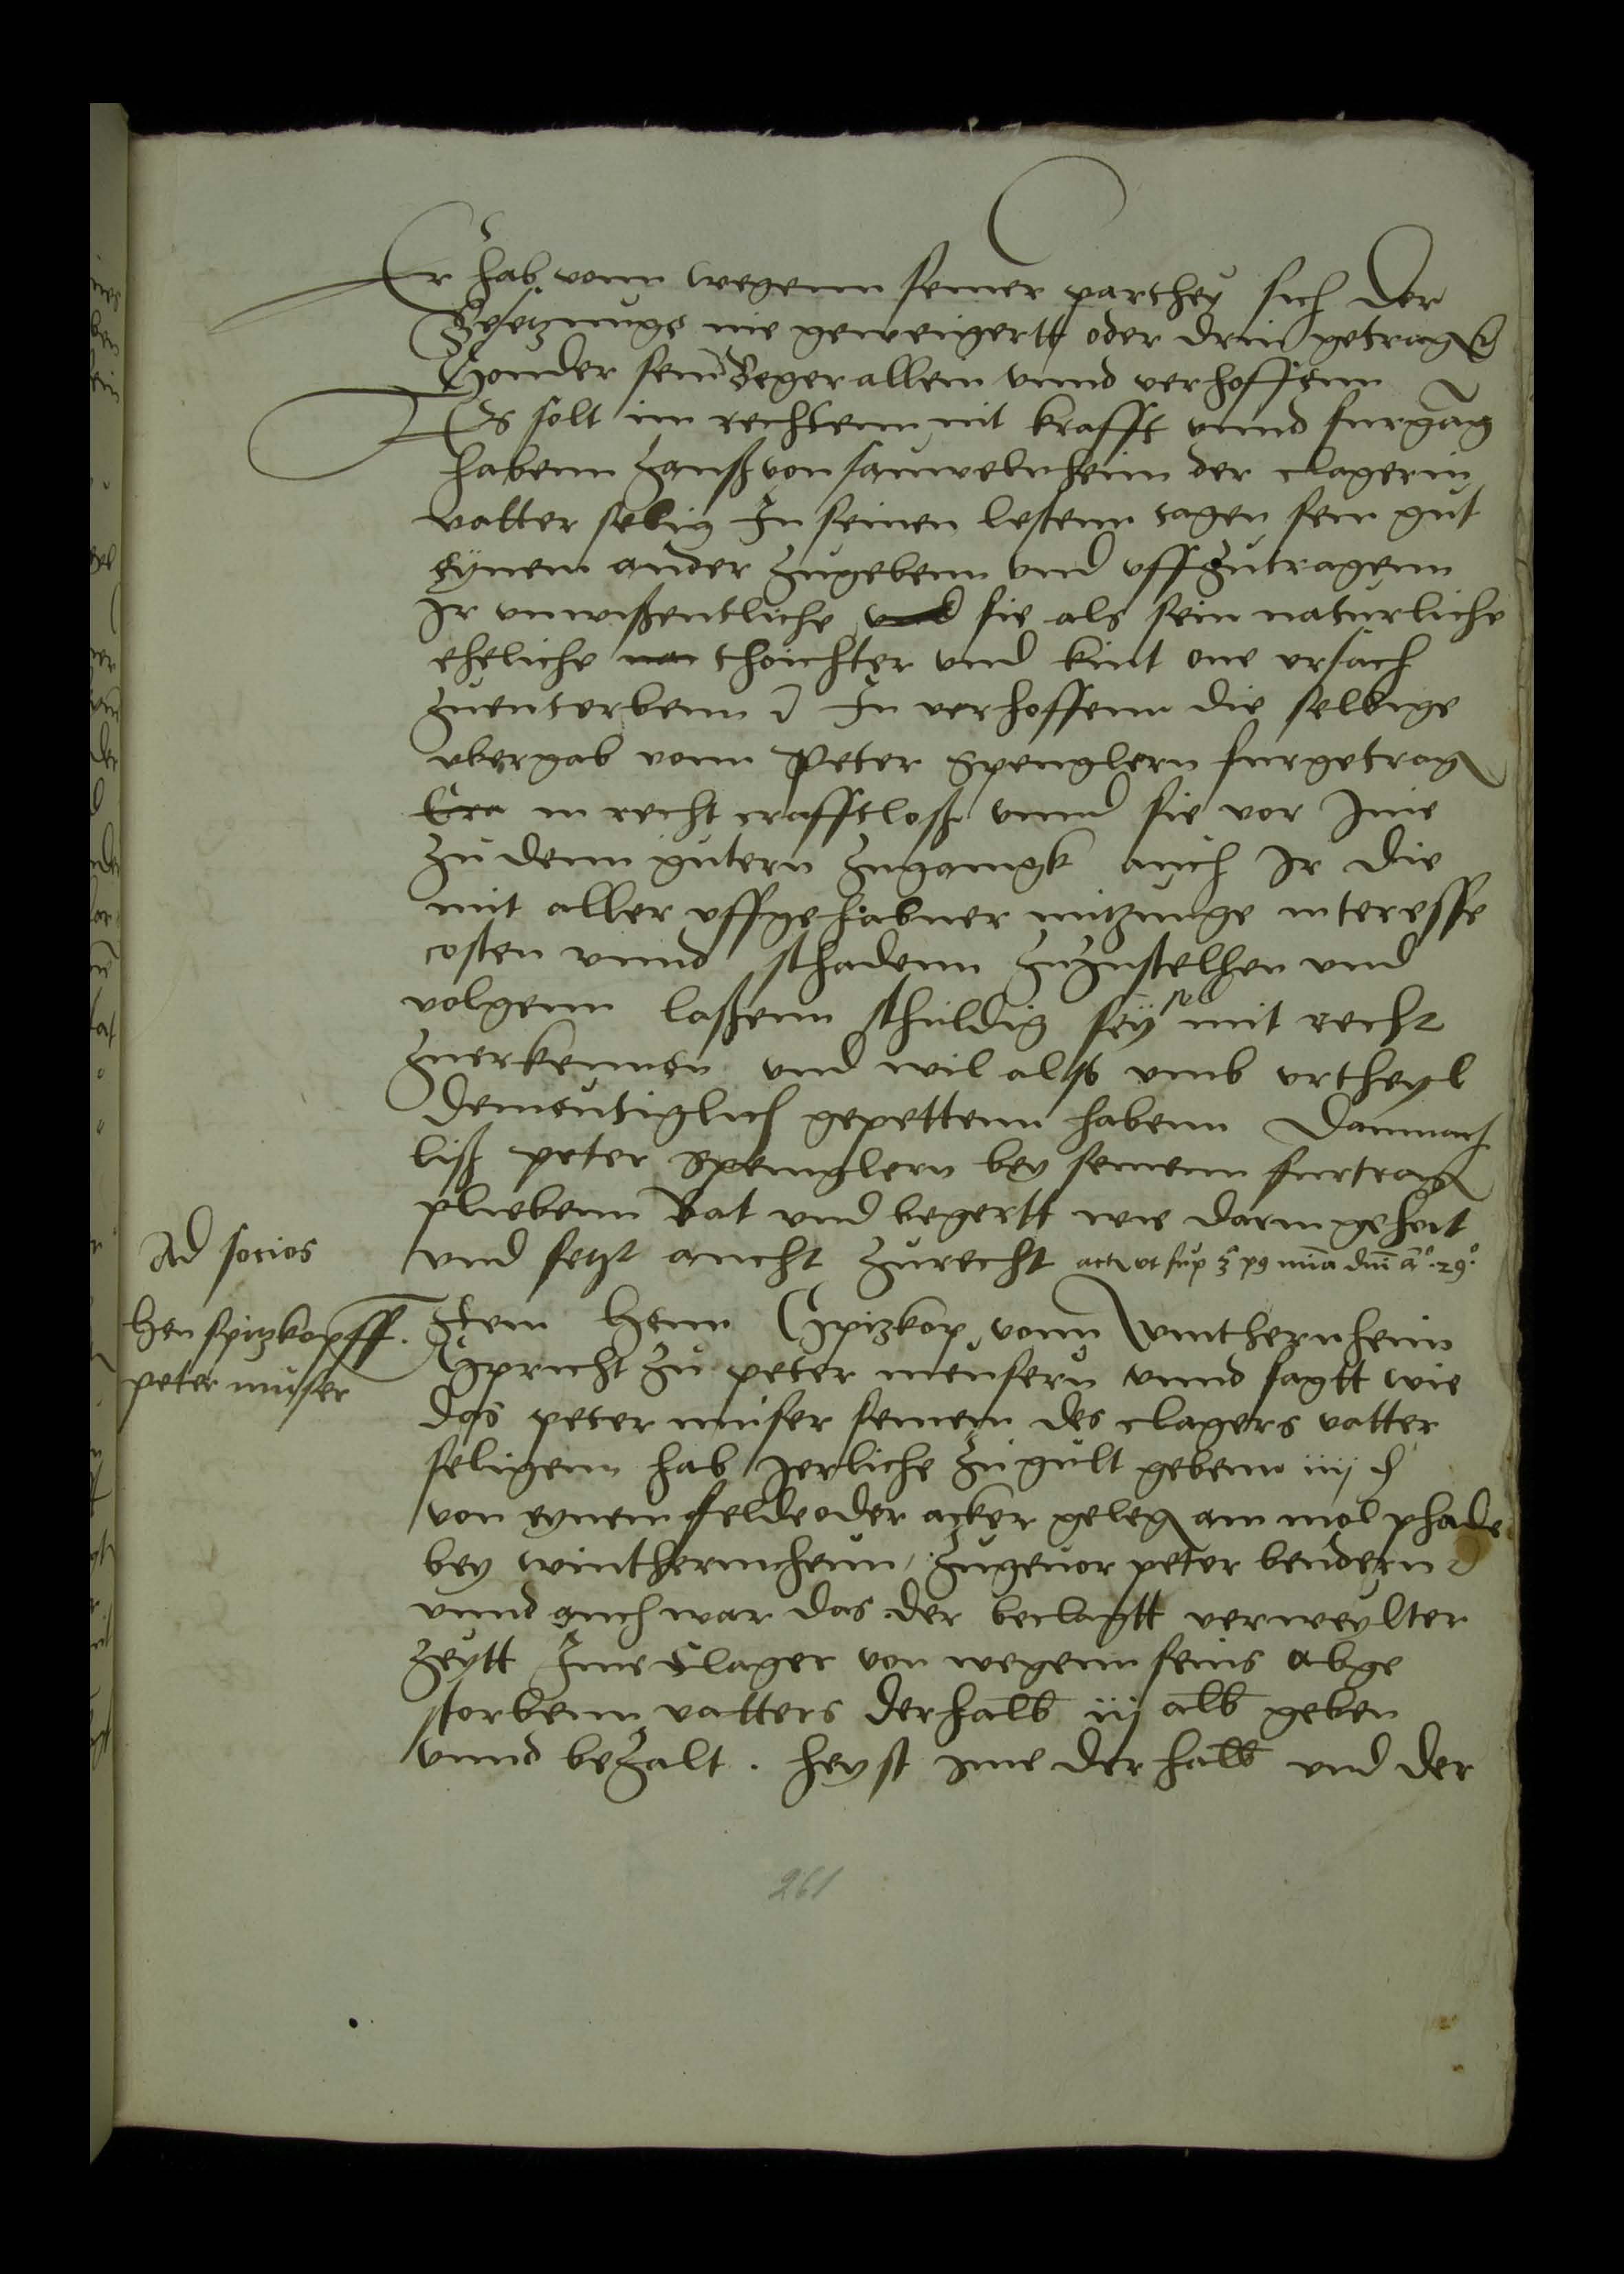 Er hab vonn wegenn seiner parthey sich der
Besetzungs nie geweigertt oder drin getragen
Sonder sein Beger allein vnnd verhoffenn
Es solt im rechtenn nit krafft vnnd furgang
habenn Hanß von sauwelnheim der clagerin
vatter selig In seinen lesten tagen sein gut
eynem ander zugebenn vnd vffzutragenn
Ir vnwißentliche vnd sie als sein naturliche
eheliche thoichter vnd kint one vrsach
zuenterbenn In verhoffenn die selbige
vbergab vonn Peter Spenglern furgetragen
in recht crafftloß vnnd sie vor Ime
zu denn gutern zugangk auch Ir die
mit aller vffgehabner nutzunge interesse
costen vnnd schadenn zuzustellen vnd
volgenn laßenn schuldig sey mit recht
zuerkennen vnd wil alß vmb vrtheyl
demoutiglich gepettenn habenn Darnach
liß peter Spenglern bey seinem furtrag
pliebenn Bat vnd begertt wie darin geheit
vnd setzt aucht zurecht act ut sup
Ad socios
Hen spitzkopff
peter muser
Item Henn Spizkop vonn Winthernheim
Spricht zu peter meusern vnnd sagtt wie
das peter muser seinem des clagers vatter
seligenn hab Jerliche zu gult gebenn iiij
von eynem felde oder acker gelegen am mol phade
bey winthernheim zugeuor peter bendern
vnnd auch war das der beclagtt verweylter
zeytt Ime Clager von wegenn seins abge
storbenn vatters derhalb iij alb geben
vnnd bezalt . heyst ime der halb vnd der
261